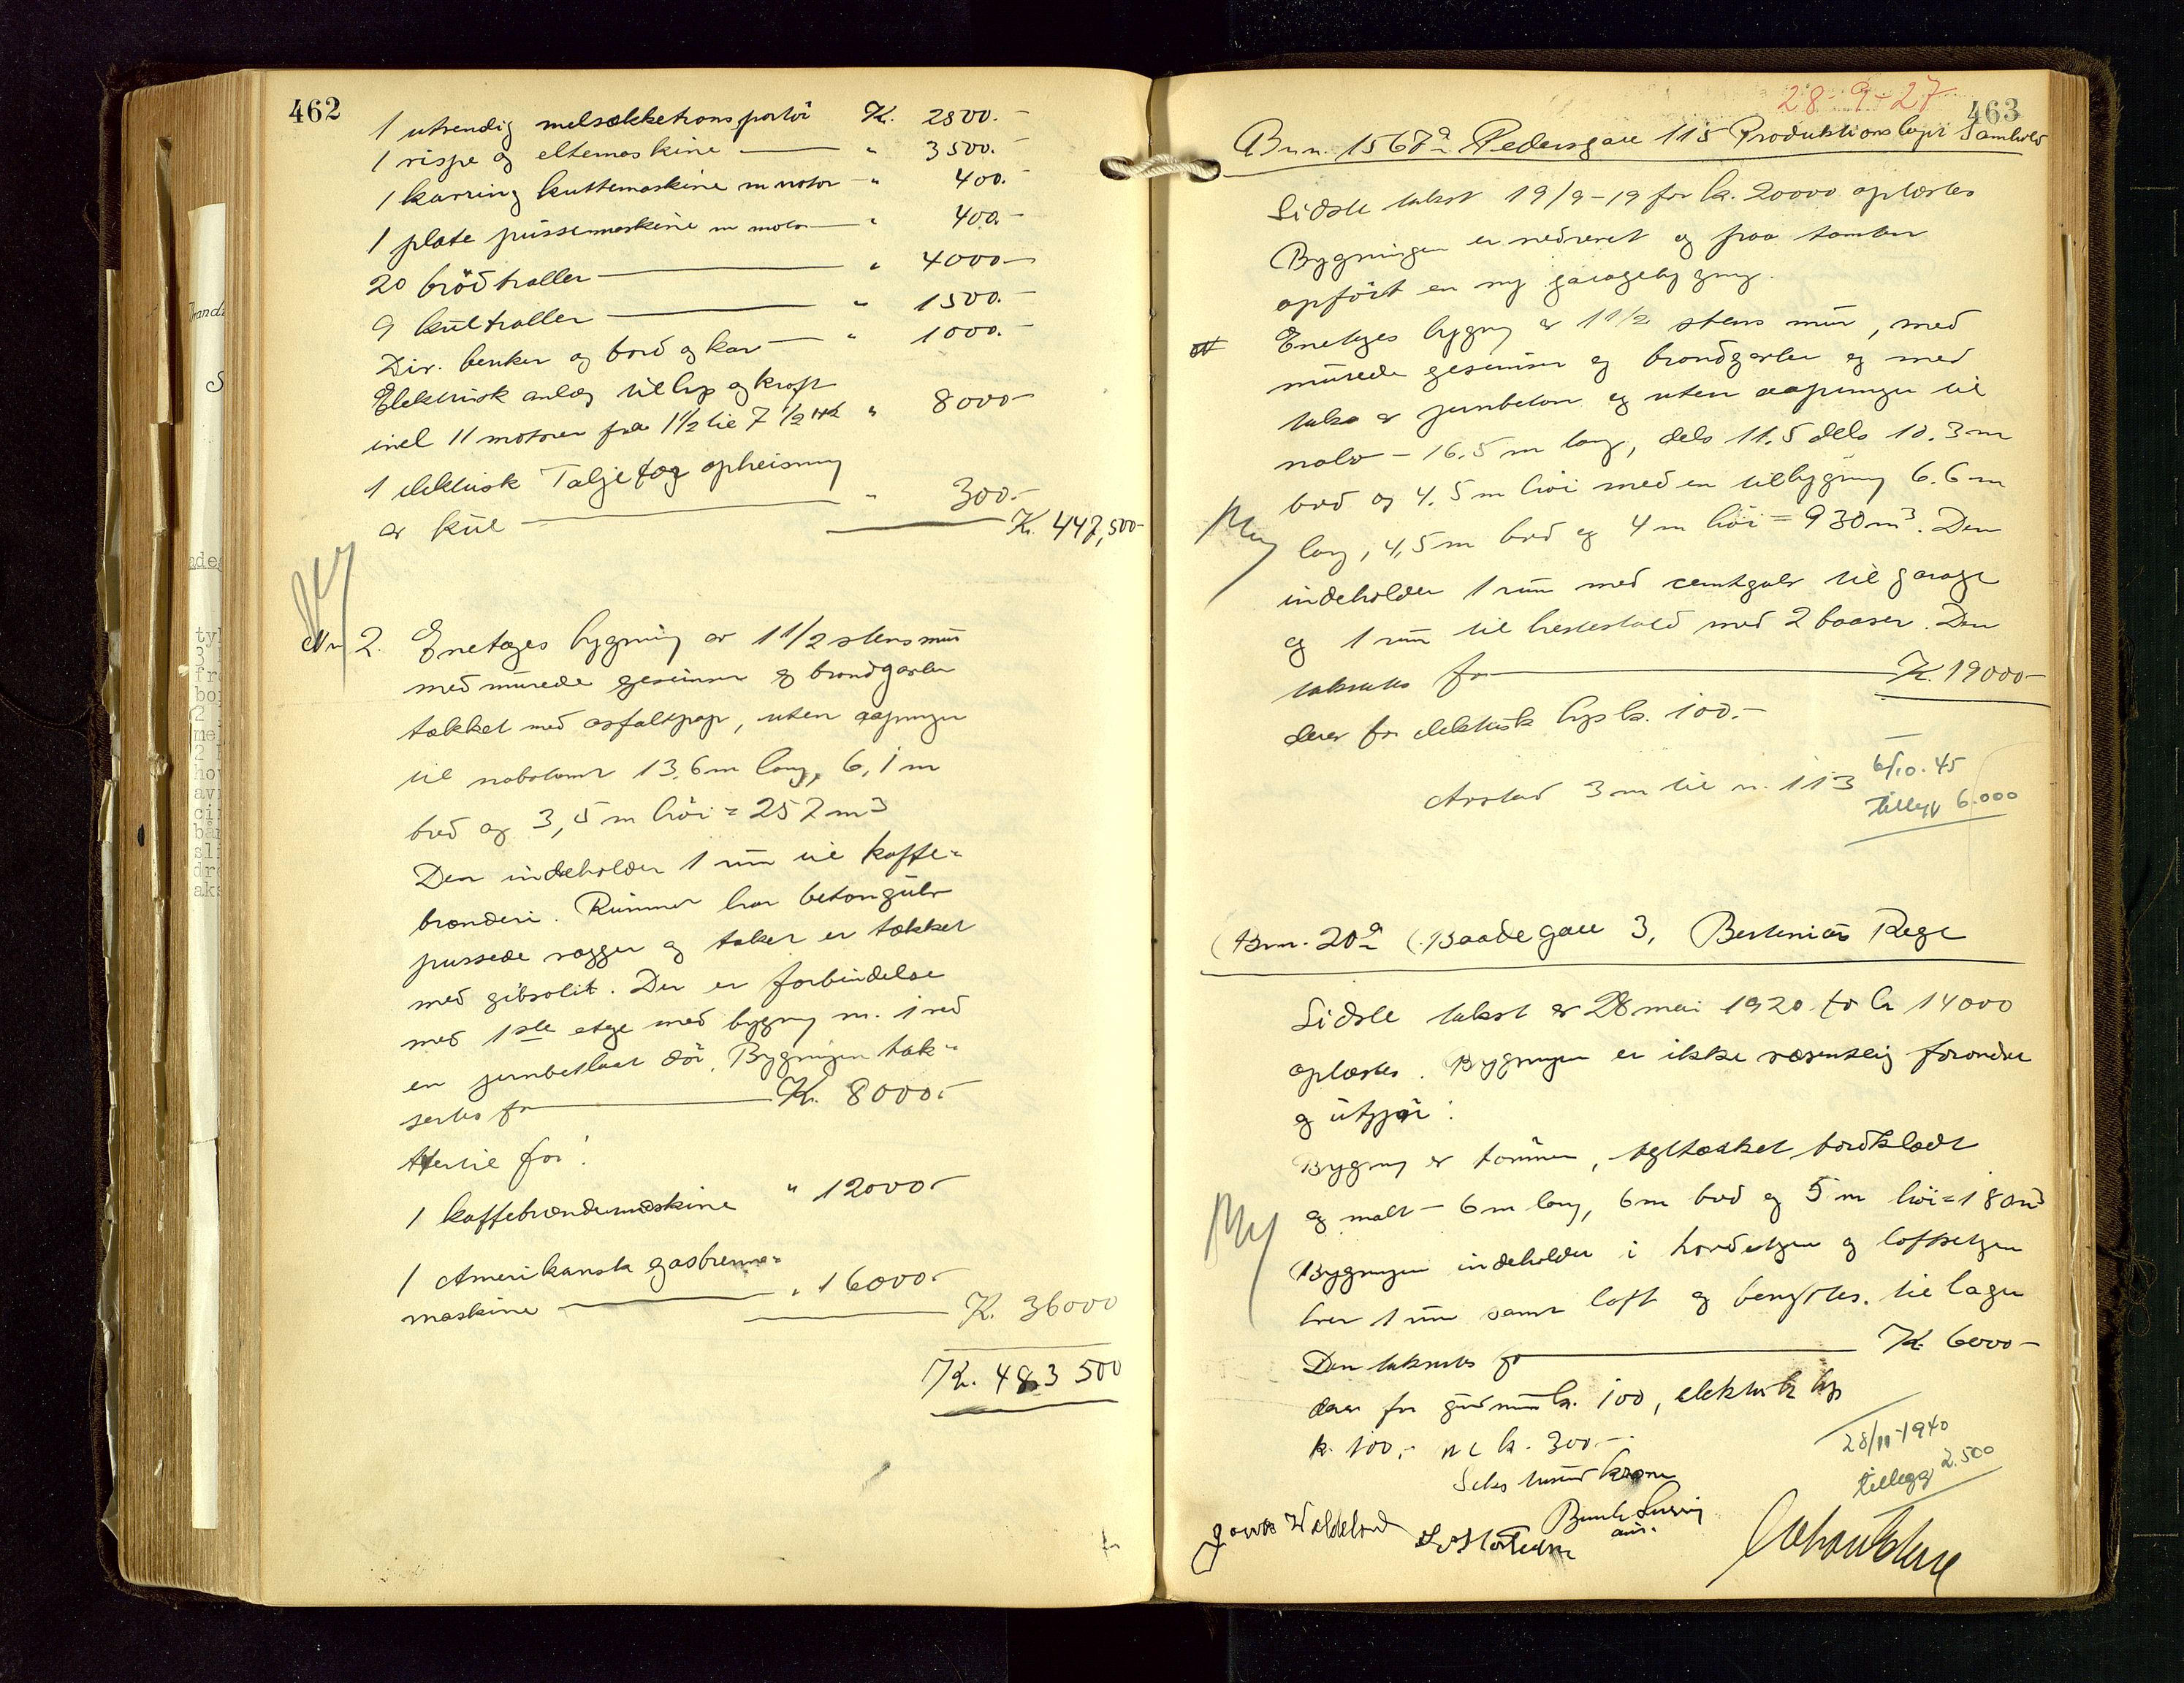 462
1 utvendig melsækketransportör Kr. 2800.-
1 rispe og eltemaskine " 3500.-
1 karring kuttemaskine m motor " 400.-
1 plate pussemaskine m motor " 400.-
20 brödtraller " 4000-
9 kultraller " 1500.-
Div. benker og bord og kar " 1000.-
Elektrisk anlæg til lys og kraft
incl 11 motorer fra 1 1/2 til 7 1/2 HK " 8000-
1 elektrisk Talje for opheisning
av kul " 300.-
Kr. 447,500-
Nr 2. Enetages bygning av 1 1/2 stens mur
med murede gesimser og brandgavler
tækket med asfaltpap, uten aapninger
til nabotomt 13,6 m lang, 6,1 m
bred og 3,5 m höi = 257 m3
Den indeholder 1 rum til kaffe-
brænderi. Rummet har betongulv
pussede vægger og taket er tækket
med gibsolit. Der er forbindelse
med 1ste etge med bygning nr. 1 ved
en jernbeslaat dör. Bygningen tak-
seres for Kr. 8000.-
Hertil for:
1 kaffebrændermaskine " 12000.-
1 Amerikansk gasbrenner-
maskine " 16000.-
Kr. 36000
Kr. 483 500
28-9-27
463
Bnr. 1567a Pedersgate 115 Produktionslaget Samhold
Sidste takst 19/9-19 for kr. 20000 oplæstes
Bygningen er nedrevet og paa tomten
opfört en ny garagebygning.
Enetages bygning av 1 1/2 stens mur, med
murede gesimser og brandgavler og med
taket av jernbeton og uten aapninger til
nabo - 16.5 m lang, dels 11.5 dels 10.3 m
bred og 4.5 m höi med en tilbygning 6.6 m
lang, 4,5 m bred og 4 m höi = 930 m3. Den
indeholder 1 rum med cemtgulv til garage
og 1 rum til hestestald med 2 baaser. Den
takseres for Kr. 19000-
derav for elektrisk lys kr. 100.-
Avstand 3 m til nr. 113
6/10.45
tillegg 6.000
Bnr. 20a Baadegate 3, Berteniäs Rege
Sidste takst av 28 mai 1920 for kr 14000
oplæstes. Bygningen er ikke væsentlig forandret
og utgjör:
Bygning av tömmer, tegltækket, bordklædt
og malt - 6 m lang, 6 m bred og 5 m höi = 180 m3
Bygningen indeholder i hovedetgen og loftsetgen
hver 1 rum samt loft og benyttes til lager
Den takseres for Kr. 6000-
derav for grundmur kr. 100, elektrisk lys
kr. 100,- kr. 300-
Seks tusind kroner
28/11-1940
tillegg 2.500